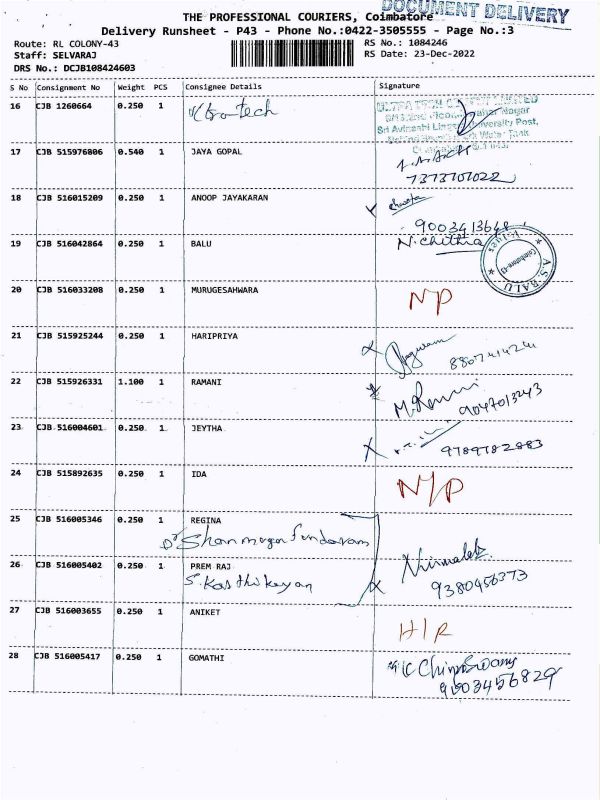 DOCUMENT DELIVERY
THE PROFESSIONAL COURIERS, Coimbatore
Delivery Runsheet - P43 - Phone No.:0422-3505555 - Page No.:3
Route: RL COLONY-43 RS No.: 1084246
Staff: SELVARAJ RS Date: 23-Dec-2022
DRS No.: DCJB108424603
S No Consignment No Weight PCS Consignee Details Signature
16 CJB 1260664 0.250 1
17 CJB 515976806 0.540 1 JAYA GOPAL
7373701022
18 CJB 516015209 0.250 1 ANOOP JAYAKARAN
19 CJB 516042864 0.250 1 BALU N. Chithra
A.S. BALU
20 CJB 516033208 0.250 1 MURUGESAHWARA NP
21 CJB 515925244 0.250 1 HARIPRIYA
22 CJB 515926331 1.100 1 RAMANI
9047013243
23 CJB 516004601 0.250 1 JEYTHA
9789782883
24 CJB 515892635 0.250 1 IDA N/P
25 CJB 516005346 0.250 1 REGINA
Dr Shanmuga Sundaram
26 CJB 516005402 0.250 1 PREM RAJ
S. Karthikeyan 9380456373
27 CJB 516003655 0.250 1 ANIKET
28 CJB 516005417 0.250 1 GOMATHI
9003456829